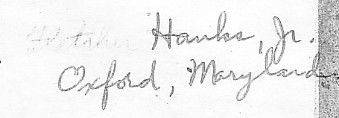 Fletcher Hanks, Jr.
Oxford, Maryland.